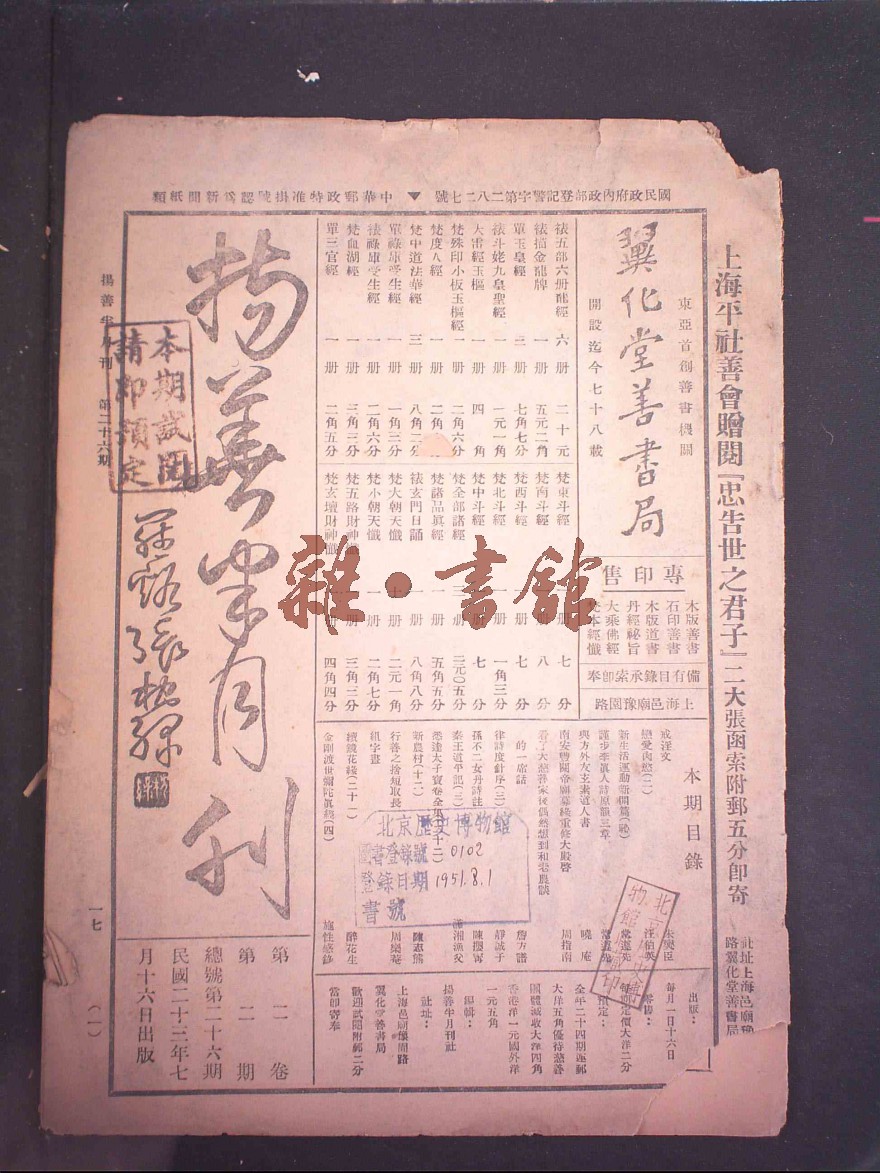 國民政府內政部登記警字第二八二七號 ▼ 中華郵政特准掛號認為新聞紙類
上海平社善會贈閱『忠告世之君子』二大張函索附郵五分即寄
社址上海邑廟豫
路翼化堂善書局
東亞首創善書機關
翼化堂善書局
開設迄今七十八載
專印售
木版善書
石印善書
木版道書
丹經祕旨
大乘佛經
梵本經懺
備有目錄承索即奉
上海邑廟豫園路
裱五部六册龍經 六册 二十元
裱描金龍牌 一册 五元二角
單玉皇經 三册 七角七分
裱斗姥九皇聖經 一册 一元一角
大雷經玉樞 一册 四角
梵殊印小板玉樞經 一册 二角六分
梵度人經 一册 二角
梵中道法華經 三册 八角二分
單祿庫受生經 一册 一角三分
裱祿庫受生經 一册 二角六分
梵血湖經 一册 三角三分
單三官經 一册 二角五分
梵東斗經 一册 七分
梵南斗經 一册 八分
梵西斗經 一册 七分
梵北斗經 一册 一角三分
梵中斗經 一册 七分
梵全部諸經 三元〇五分
梵諸品眞經 五角五分
裱玄門日誦 八角八分
梵大朝天懺 十册 二元一角
梵小朝天懺 一册 二角七分
梵五路財神懺 一册 三角三分
梵玄壇財神懺 一册 四角四分
本期目錄
戒淫文 朱奐臣
戀愛肉慾(二) 汪伯英
新生活運動新開篇(恥) 常遵先
謹步李眞人詩原韻三章 常遵先
與方外友玄素道人書 曉庵
南安豐關帝廟募緣重修大殿啓 周指南
看了大慈善家後偶然想到和老農談
的一席話 詹方譜
律詩度針序(三) 靜誠子
孫不二女丹詩註 陳攖寧
秦王道平記(三) 瀟湘漁父
悉達太子寶卷全集(十二)
新農村(十二) 陳志熊
行善之捨短取長 周樂菴
組字畫
續鏡花緣(二十一) 醉花生
金剛波世彌陀眞經(四) 媲性盛錄
出版：
每月一日十六日
零售：
每期定價大洋二分
預定：
全年二十四期連郵
大洋五角優待慈善
團體減收大洋四角
香港洋一元國外洋
一元五角
編輯：
揚善半月刊社
社址：
上海邑廟豫園路
翼化堂善書局
歡迎試閱附郵二分
當即寄奉
揚善半月刊
本期試閱
請即預定
揚善半月刊 第二十六期
一七 (一)
第二卷
第二期
總號第二十六期
民國二十三年七
月十六日出版
雜·書館
北京歷史博物館
圖書登錄號 0102
登錄日期 1951.8.1
書號